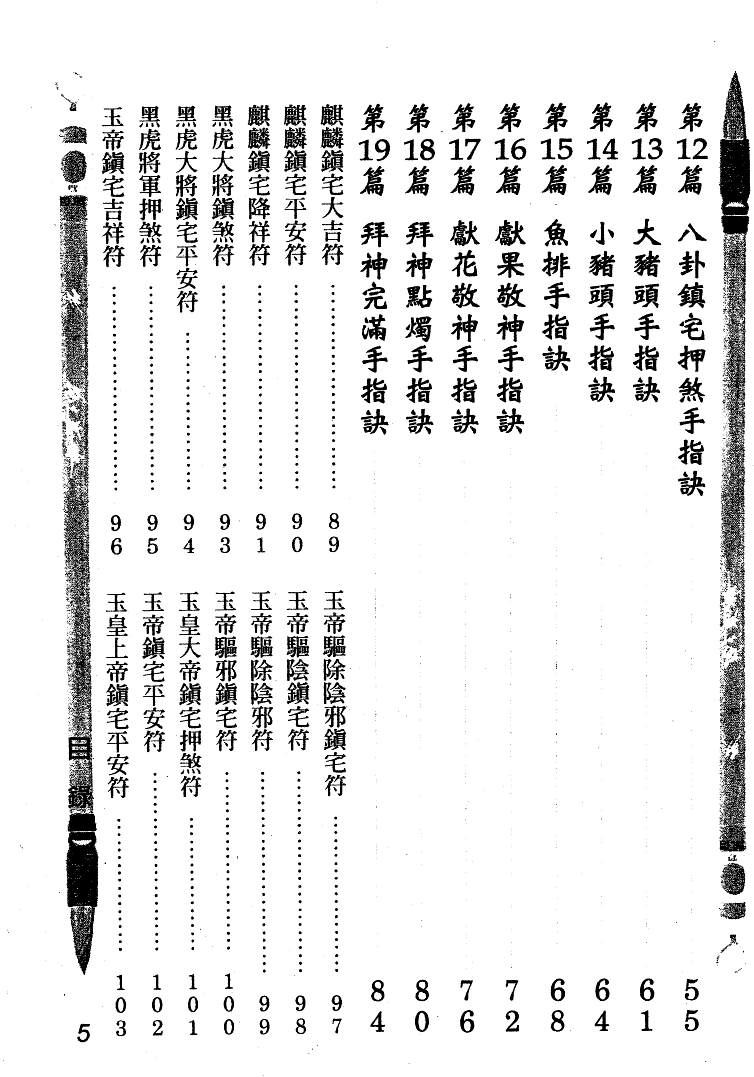 第12篇 八卦鎮宅押煞手指訣 55
第13篇 大豬頭手指訣 61
第14篇 小豬頭手指訣 64
第15篇 魚排手指訣 68
第16篇 獻果敬神手指訣 72
第17篇 獻花敬神手指訣 76
第18篇 拜神點燭手指訣 80
第19篇 拜神完滿手指訣 84
麒麟鎮宅大吉符 89
麒麟鎮宅平安符 90
麒麟鎮宅降祥符 91
黑虎大將鎮煞符 93
黑虎大將鎮宅平安符 94
黑虎將軍押煞符 95
玉帝鎮宅吉祥符 96
玉帝驅除陰邪鎮宅符 97
玉帝驅陰鎮宅符 98
玉帝驅除陰邪符 99
玉帝驅邪鎮宅符 100
玉皇大帝鎮宅押煞符 101
玉帝鎮宅平安符 102
玉皇上帝鎮宅平安符 103
目錄
5